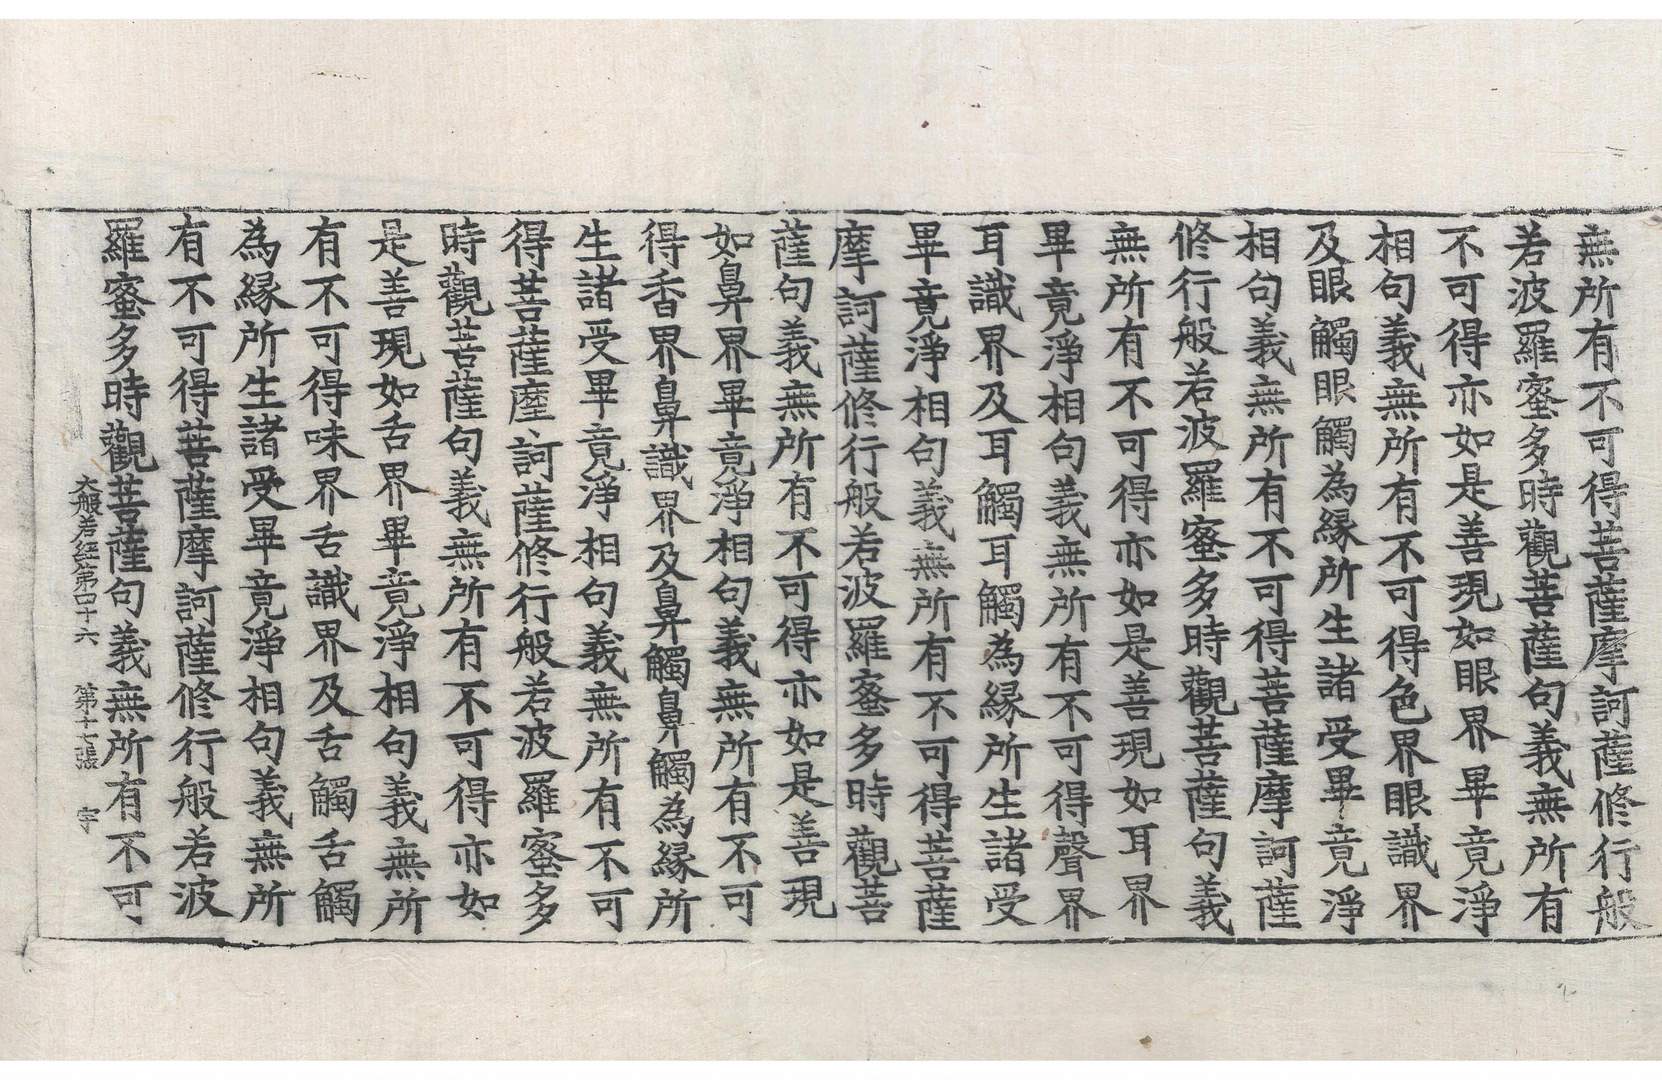 無所有不可得菩薩摩訶薩修行般
若波羅蜜多時觀菩薩句義無所有
不可得亦如是善現如眼界畢竟淨
相句義無所有不可得色界眼識界
及眼觸眼觸為緣所生諸受畢竟淨
相句義無所有不可得菩薩摩訶薩
修行般若波羅蜜多時觀菩薩句義
無所有不可得亦如是善現如耳界
畢竟淨相句義無所有不可得聲界
耳識界及耳觸耳觸為緣所生諸受
畢竟淨相句義無所有不可得菩薩
摩訶薩修行般若波羅蜜多時觀菩
薩句義無所有不可得亦如是善現
如鼻界畢竟淨相句義無所有不可
得香界鼻識界及鼻觸鼻觸為緣所
生諸受畢竟淨相句義無所有不可
得菩薩摩訶薩修行般若波羅蜜多
時觀菩薩句義無所有不可得亦如
是善現如舌界畢竟淨相句義無所
有不可得味界舌識界及舌觸舌觸
為緣所生諸受畢竟淨相句義無所
有不可得菩薩摩訶薩修行般若波
羅蜜多時觀菩薩句義無所有不可
大般若經第四十六 第十七張 宇